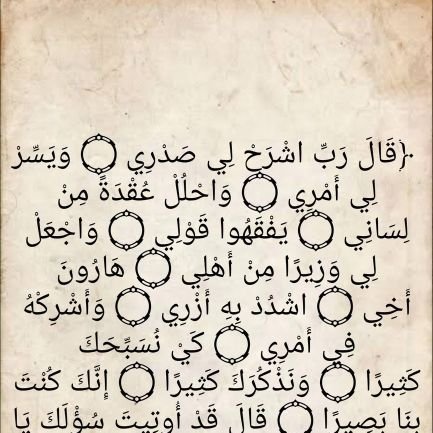 ﴿قَالَ رَبِّ اشْرَحْ لِي صَدْرِي ۝ وَيَسِّرْ
لِي أَمْرِي ۝ وَاحْلُلْ عُقْدَةً مِنْ
لِسَانِي ۝ يَفْقَهُوا قَوْلِي ۝ وَاجْعَلْ
لِي وَزِيرًا مِنْ أَهْلِي ۝ هَارُونَ
أَخِي ۝ اشْدُدْ بِهِ أَزْرِي ۝ وَأَشْرِكْهُ
فِي أَمْرِي ۝ كَيْ نُسَبِّحَكَ
كَثِيرًا ۝ وَنَذْكُرَكَ كَثِيرًا ۝ إِنَّكَ كُنْتَ
بِنَا بَصِيرًا ۝ قَالَ قَدْ أُوتِيتَ سُؤْلَكَ يَا